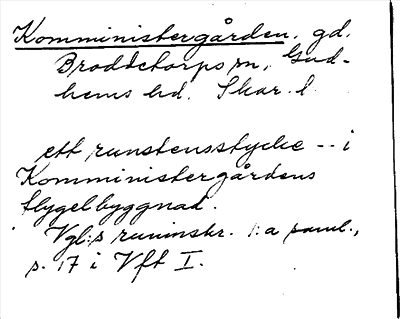 Komministergården. gd.
Broddetorps sn, Gud-
hems hd. Skar. l.
ett runstensstycke -- i
Komministergårdens
flygelbyggnad.
Vgl:s runinskr. 1:a saml.,
s. 17 i Vft I.